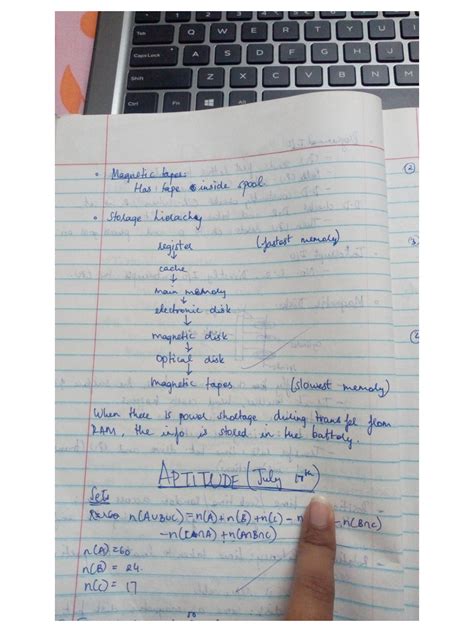 Tab Q W E R T Y U I O P
CapsLock A S D F G H J K L
Shift Z X C V B N M
Ctrl Fn Alt
• Magnetic tapes:
Has tape inside spool
• Storage hierachy
register (fastest memory)
↓
cache
↓
main memory
↓
electronic disk
↓
magnetic disk
↓
optical disk
↓
magnetic tapes (slowest memory)
When there is power shortage during transfer from
RAM, the info is stored in the battery.
APTITUDE (July 17th)
Sets
n(AUBUC) = n(A) + n(B) + n(C) - n - n(B∩C)
- n(C∩A) + n(A∩B∩C)
n(A) = 60
n(B) = 24
n(C) = 17